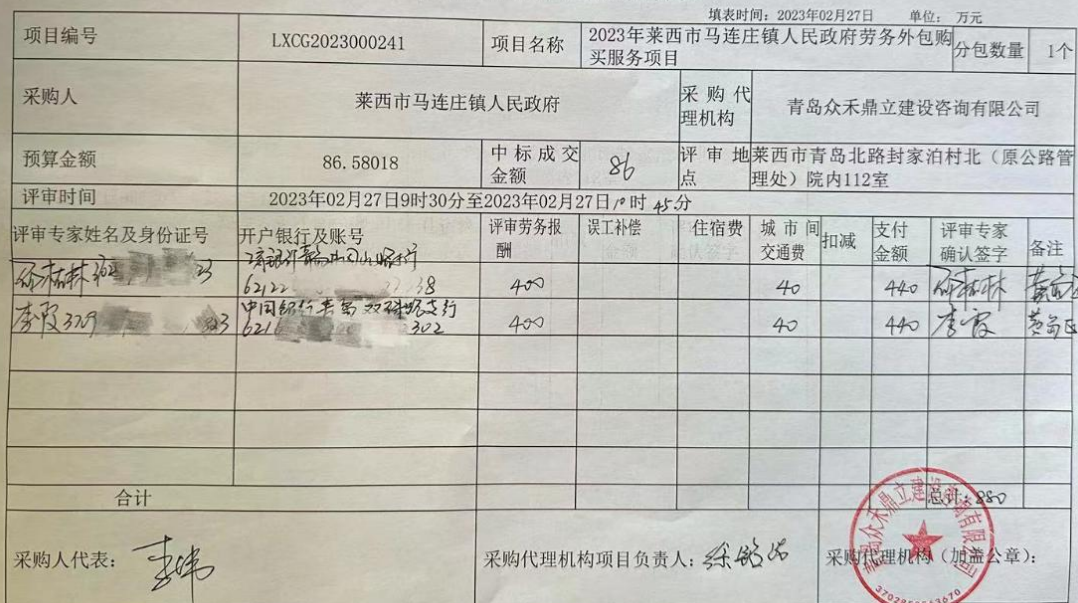 填表时间：2023年02月27日 单位：万元
项目编号 LXCG2023000241 项目名称 2023年莱西市马连庄镇人民政府劳务外包购 分包数量 1个
买服务项目
采购人 莱西市马连庄镇人民政府 采购代 青岛众禾鼎立建设咨询有限公司
理机构
预算金额 86.58018 中标成交 86 评审地 莱西市青岛北路封家泊村北（原公路管
金额 点 理处）院内112室
评审时间 2023年02月27日9时30分至2023年02月27日10时45分
评审专家姓名及身份证号 开户银行及账号 评审劳务报 误工补偿 住宿费 城市间 扣减 支付 评审专家 备注
酬 交通费 金额 确认签字
林 23
62122 38 400 40 440 林
李霞 中国银行 支行
6216 302 400 40 440 李霞
合计 总计：880
采购人代表： 采购代理机构项目负责人： 采购代理机构（加盖公章）：
青岛众禾鼎立建设咨询有限公司